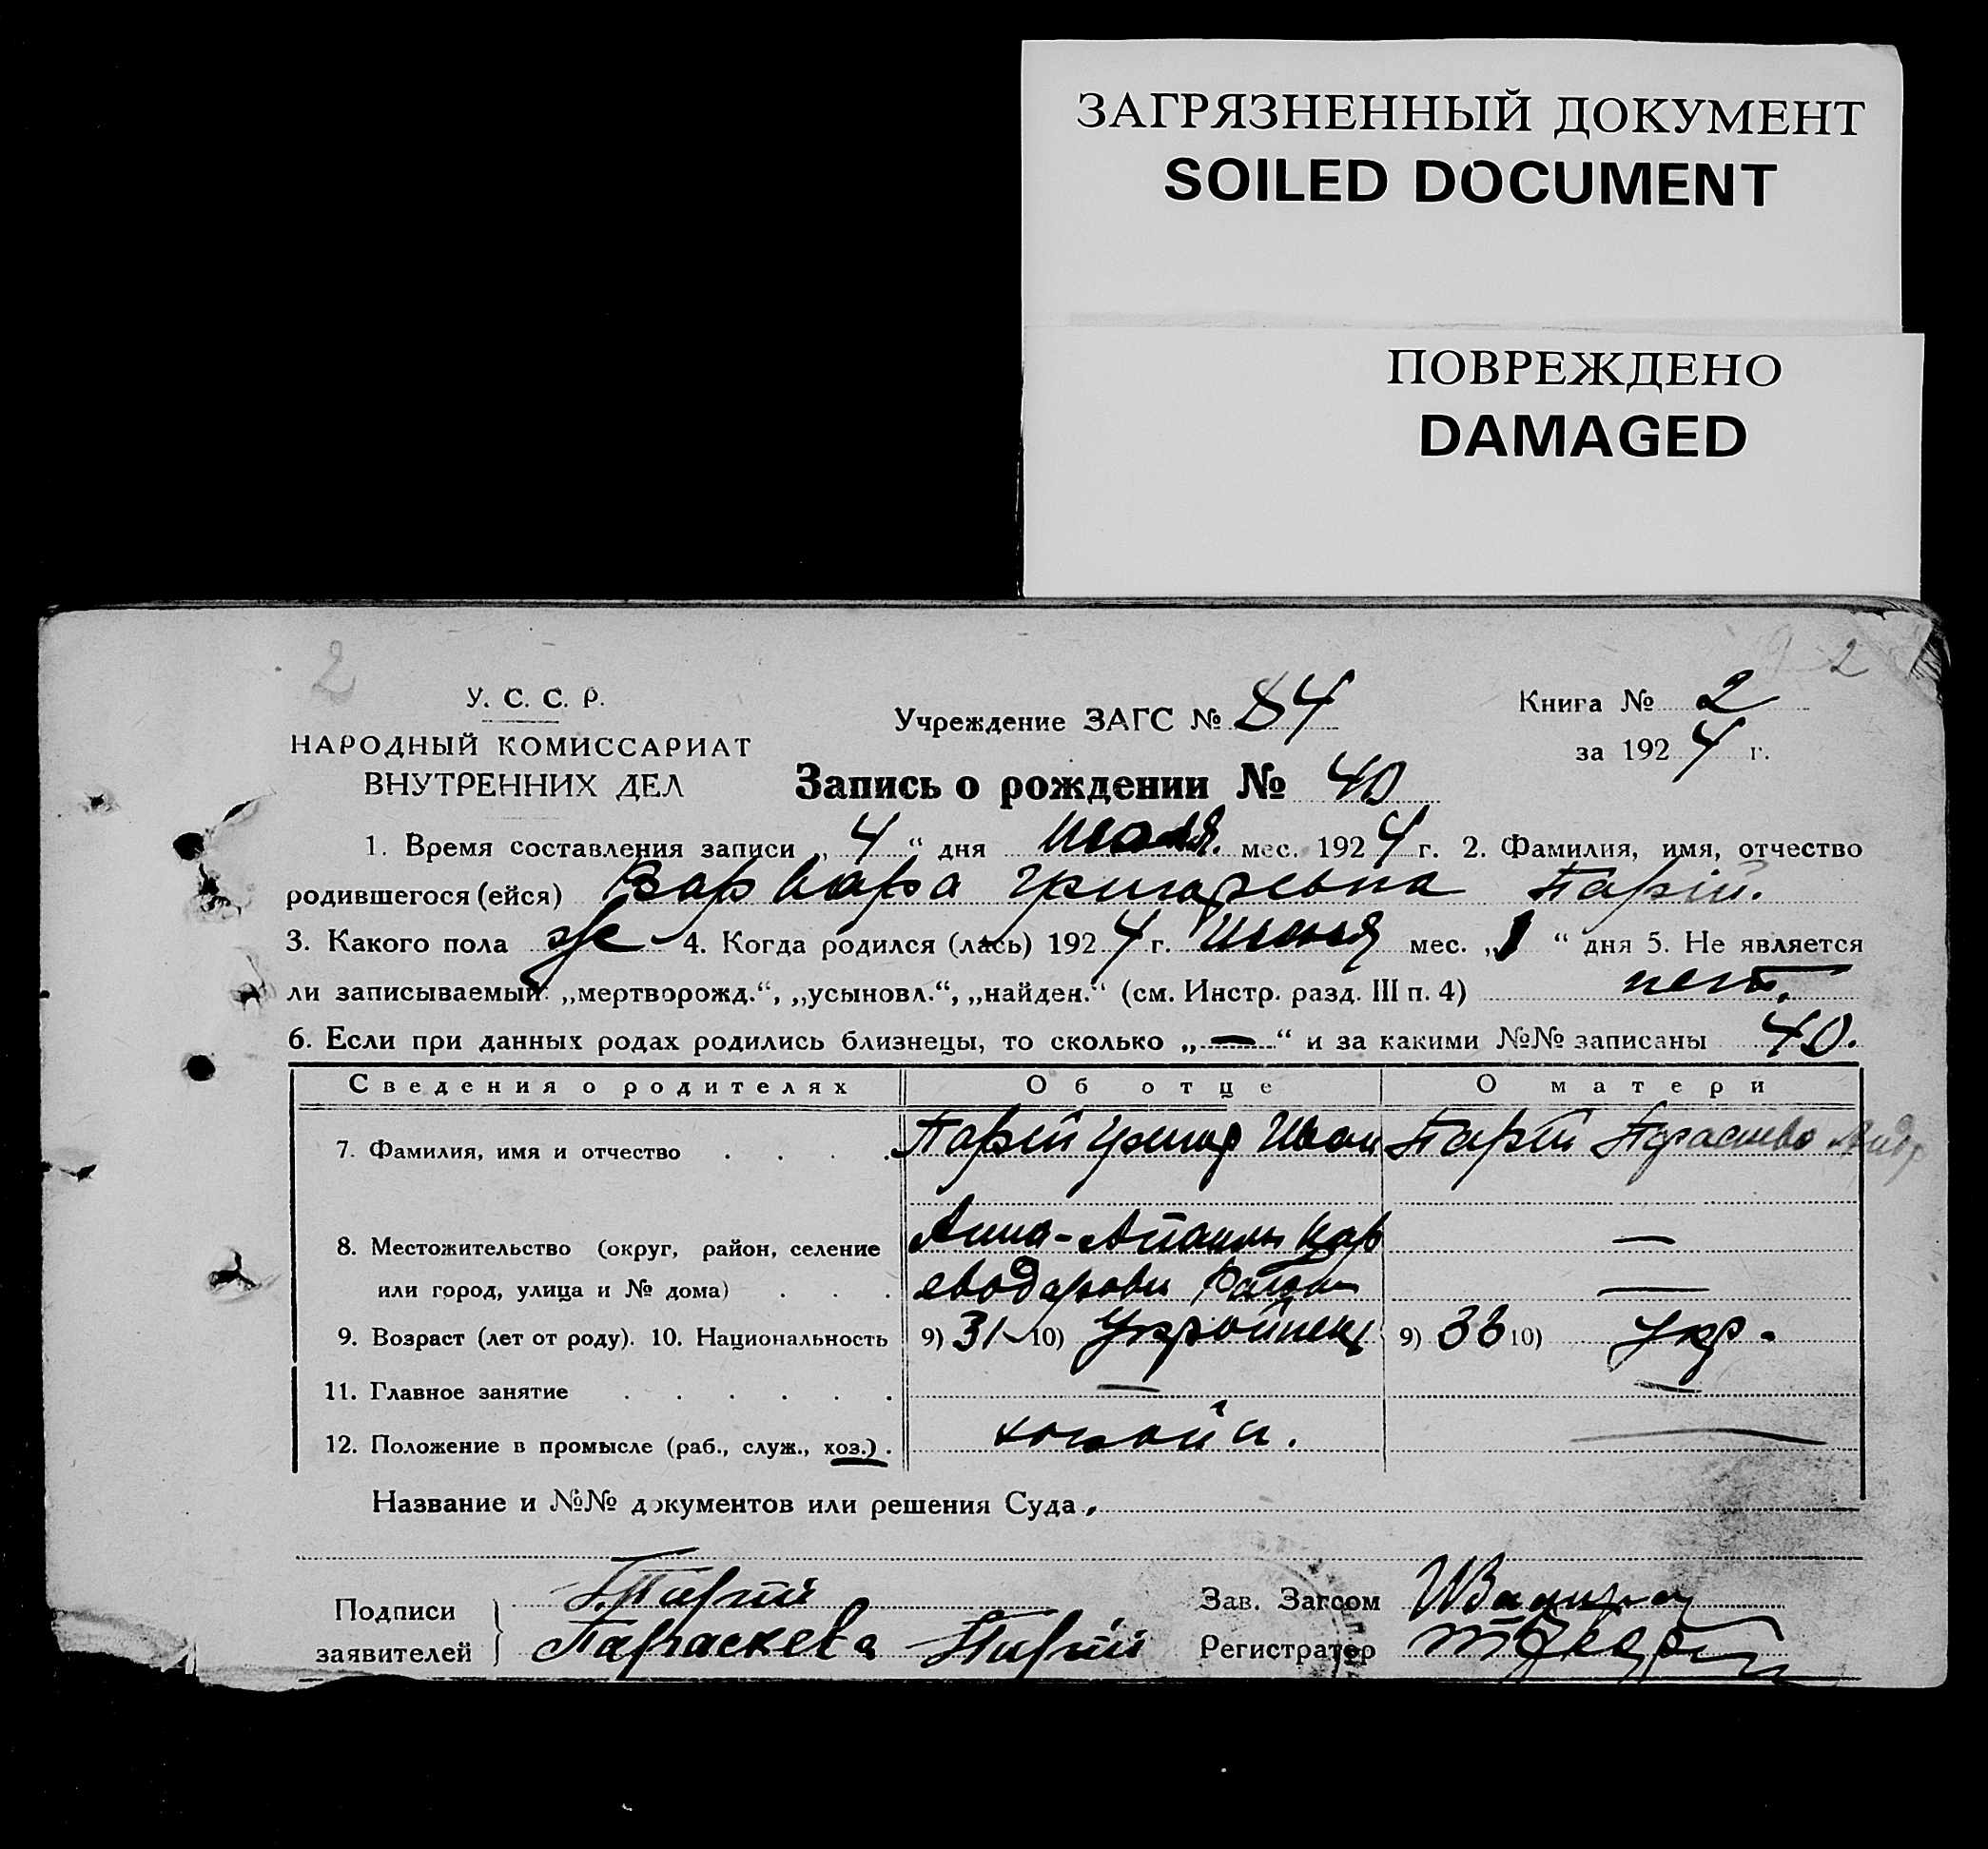 ЗАГРЯЗНЕННЫЙ ДОКУМЕНТ
SOILED DOCUMENT
ПОВРЕЖДЕНО
DAMAGED
2
2
У. С. С. Р.
НАРОДНЫЙ КОМИССАРИАТ
ВНУТРЕННИХ ДЕЛ
Учреждение ЗАГС № 84
Книга № 2
за 1924 г.
Запись о рождении № 40
1. Время составления записи „ 4 “ дня мес. 1924 г. 2. Фамилия, имя, отчество
родившегося (ейся) Варвара Григорьевна Парій.
3. Какого пола же 4. Когда родился (лась) 1924 г. мес. „1“ дня 5. Не является
ли записываемый: „мертворожд.“, „усыновл.“, „найден.“ (см. Инстр. разд. III п. 4) нет.
6. Если при данных родах родились близнецы, то сколько „—“ и за какими №№ записаны 40.
Сведения о родителях Об отце О матери
7. Фамилия, имя и отчество . . . . Парій Григор Иван Парій Параскева Андр
8. Местожительство (округ, район, селение Анно-
или город, улица и № дома) . . . Район —
9. Возраст (лет от роду). 10. Национальность 9) 31 10) Украинец 9) 33 10) укр.
11. Главное занятие . . . . . . — —
12. Положение в промысле (раб., служ., хоз.) . хозяин. —
Название и №№ документов или решения Суда
Подписи заявителей
Г. Парій
Параскева Парій
Зав. Загсом
Регистратор